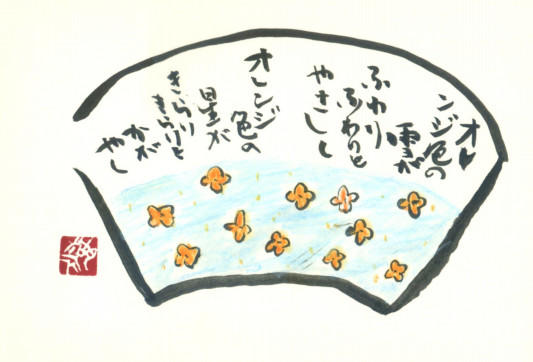 オレ
ンジ色の
雲が
ふわり
ふわりと
やさしく
オレンジ
色の
星が
きらり
きらりと
かが
やく